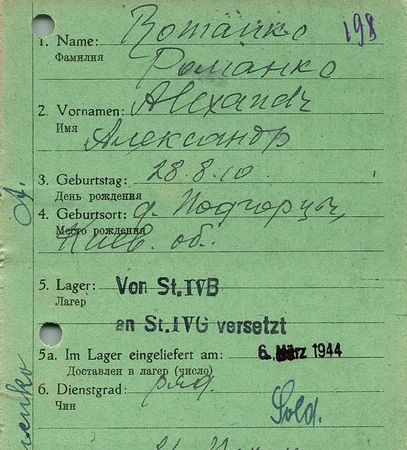 198
1. Name: Romanko
Фамилия Романко
2. Vornamen: Alexandr
Имя
Александр
3. Geburtstag: 28.8.10.
День рождения
4. Geburtsort: д. Подгорцы,
Место рождения
Киев. об.
5. Lager: Von St.IVB
Лагер
an St.IVG versetzt
5a. Im Lager eingeliefert am: 6. März 1944
Доставлен в лагер (число)
6. Dienstgrad: ряд.
Чин
Sold.